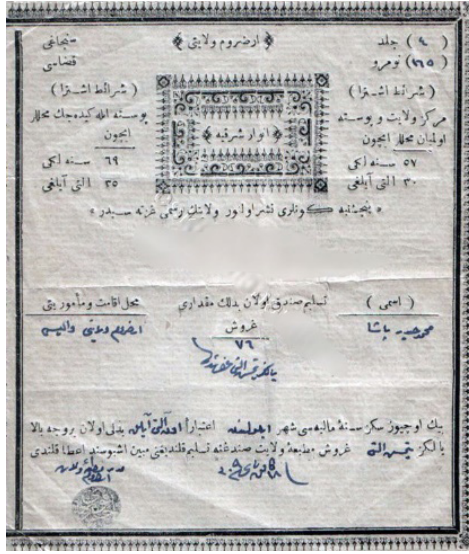 ارضروم ولايتى
( ٤ ) جلد
نومرو
سنجاغى
قضاسى
( شرائط اشترا )
مركز ولايت و پوسته
اولميان محللر ايچون
٥٧ سنه لكى
٣٠ التى آيلغى
انوار شرقيه
( شرائط اشترا )
پوسته ايله كيده جك محللر
ايچون
٦٩ سنه لكى
٣٥ التى آيلغى
پنجشنبه كونلرى نشر اولنور ولايتك رسمى غزته سيدر
( اسمى )
پاشا
تسليم صندق اولان بدلك مقدارى
غروش
٧٦
محل اقامت ومأموريتى
ارضروم ولايتى واليسى
بيك اوچيوز سكز سنهٔ ماليه سى شهر اعتباراً بدلى اولان بروجه بالا
يالكز يتمش التى غروش مطبعهٔ ولايت صندغنه تسليم قلنديغنى مبين اشبو سند اعطا قلندى